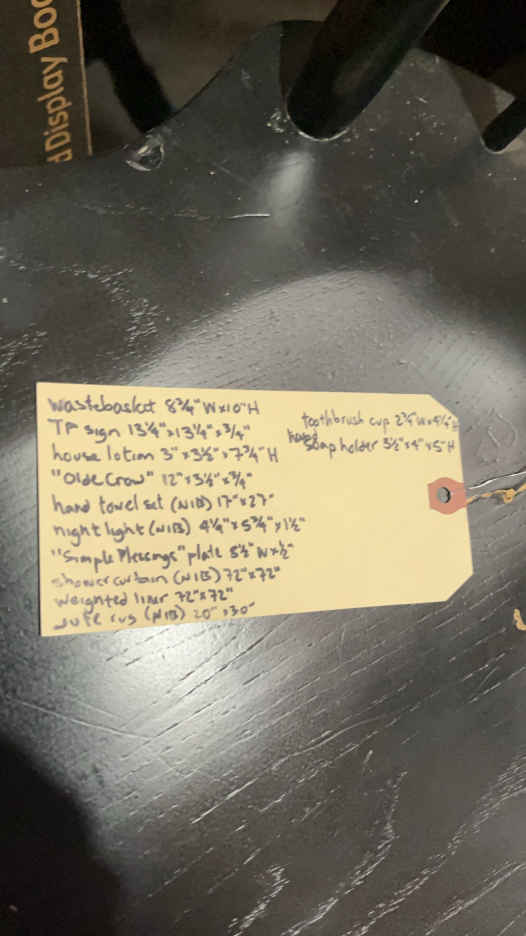 d Display Boo
wastebasket 8¾" W x 10" H
TP sign 13¼" x 13¼" x ¾"
house lotion 3" x 3½" x 7¾" H
"Olde Crow" 12" x 3½" x ¾"
hand towel set (NIB) 17" x 27"
night light (NIB) 4¼" x 5¾" x 1½"
"Simple Blessings" plate 8½" W x ½"
shower curtain (NIB) 72" x 72"
weighted liner 72" x 72"
Jute rug (NIB) 20" x 30"
toothbrush cup 2¾" W x 4¼" H
hand soap holder 3½" x 4" x 5" H